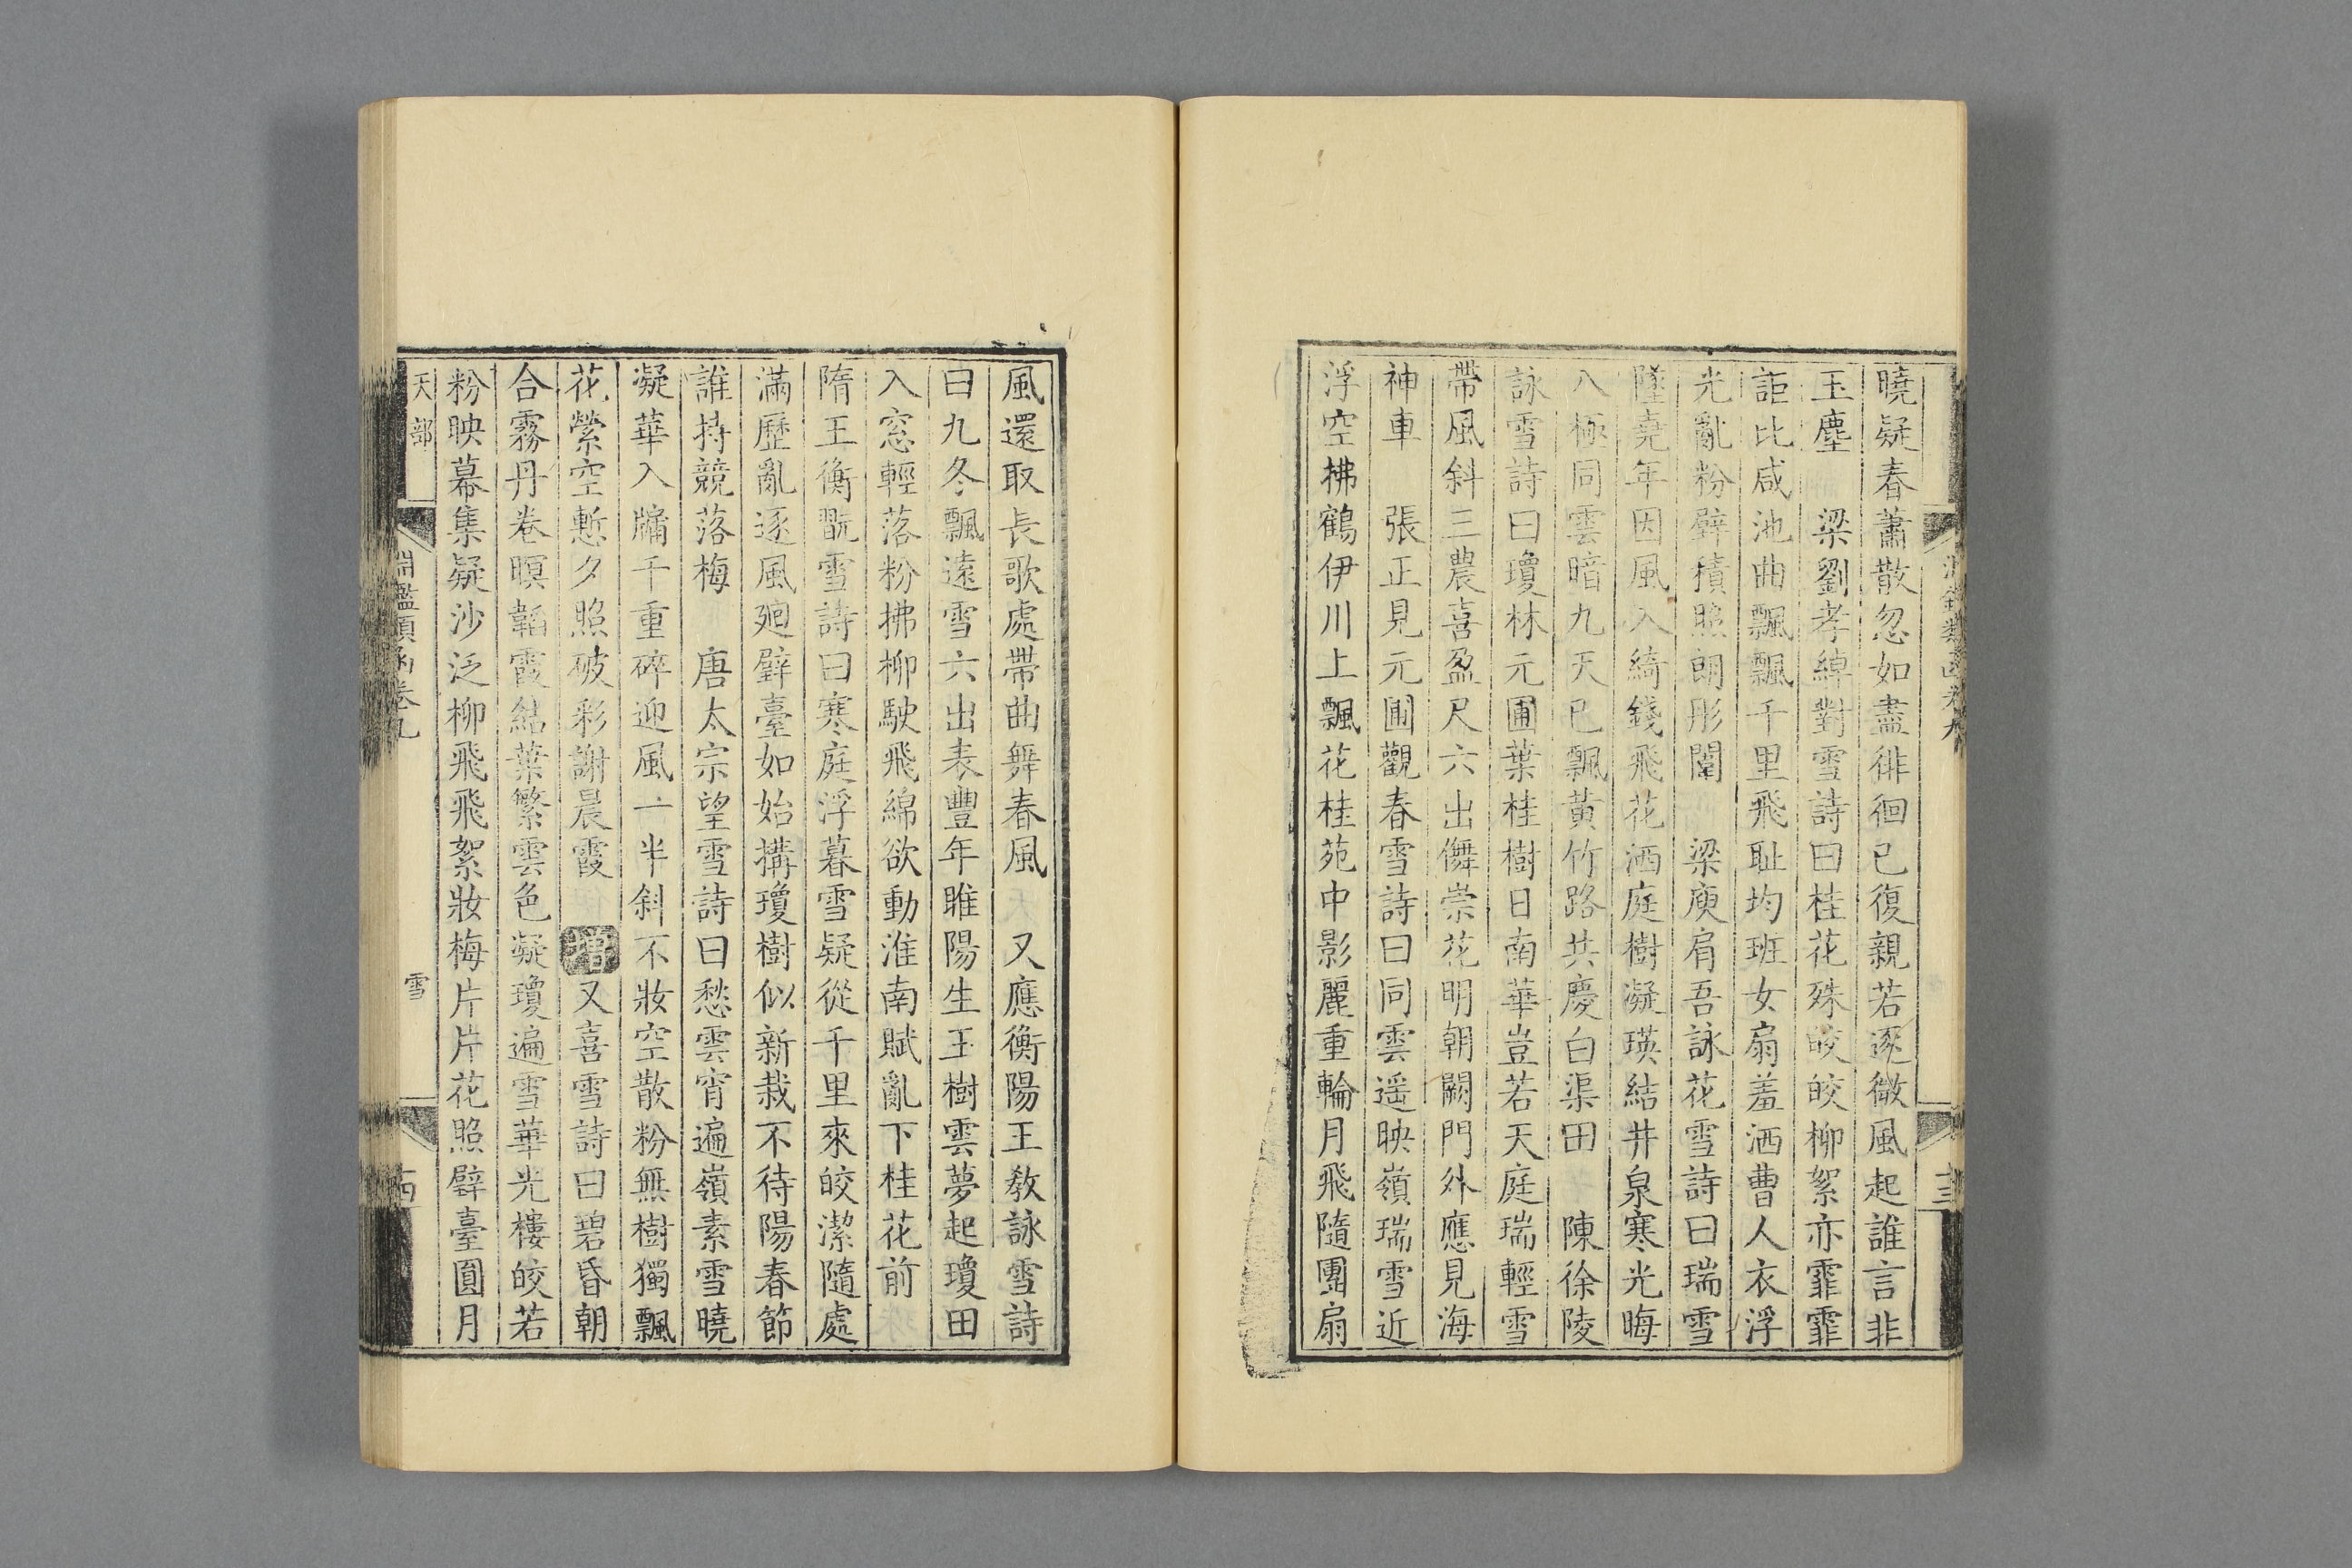 曉疑春蕭散忽如盡徘徊已復親若逐微風起誰言非
玉塵　梁劉孝綽對雪詩曰桂花殊皎皎柳絮亦霏霏
詎比咸池曲飄飄千里飛恥均班女扇羞洒曹人衣浮
光亂粉壁積照朗彤闈　梁庾肩吾詠花雪詩曰瑞雪
墜堯年因風入綺錢飛花洒庭樹凝瑛結井泉寒光晦
八極同雲暗九天已飄黃竹路共慶白渠田　陳徐陵
詠雪詩曰瓊林元圃葉桂樹日南華豈若天庭瑞輕雪
帶風斜三農喜盈尺六出儛崇花明朝闕門外應見海
神車　張正見元圃觀春雪詩曰同雲遥映嶺瑞雪近
浮空拂鶴伊川上飄花桂苑中影麗重輪月飛隨團扇
十三
風還取長歌處帶曲舞春風　又應衡陽王教詠雪詩
曰九冬飄遠雪六出表豐年睢陽生玉樹雲夢起瓊田
入窓輕落粉拂柳駛飛綿欲動淮南賦亂下桂花前
隋王衡翫雪詩曰寒庭浮暮雪疑從千里來皎潔隨處
滿歷亂逐風廻璧臺如始搆瓊樹似新栽不待陽春節
誰持競落梅　唐太宗望雪詩曰愁雲宵遍嶺素雪曉
凝華入牖千重碎迎風一半斜不妝空散粉無樹獨飄
花縈空慙夕照破彩謝晨霞　增又喜雪詩曰碧昏朝
合霧丹卷暝韜霞結葉繁雲色凝瓊遍雪華光樓皎若
粉映幕集疑沙泛柳飛飛絮妝梅片片花照璧臺圓月
天部
淵鑑類函卷九
雪